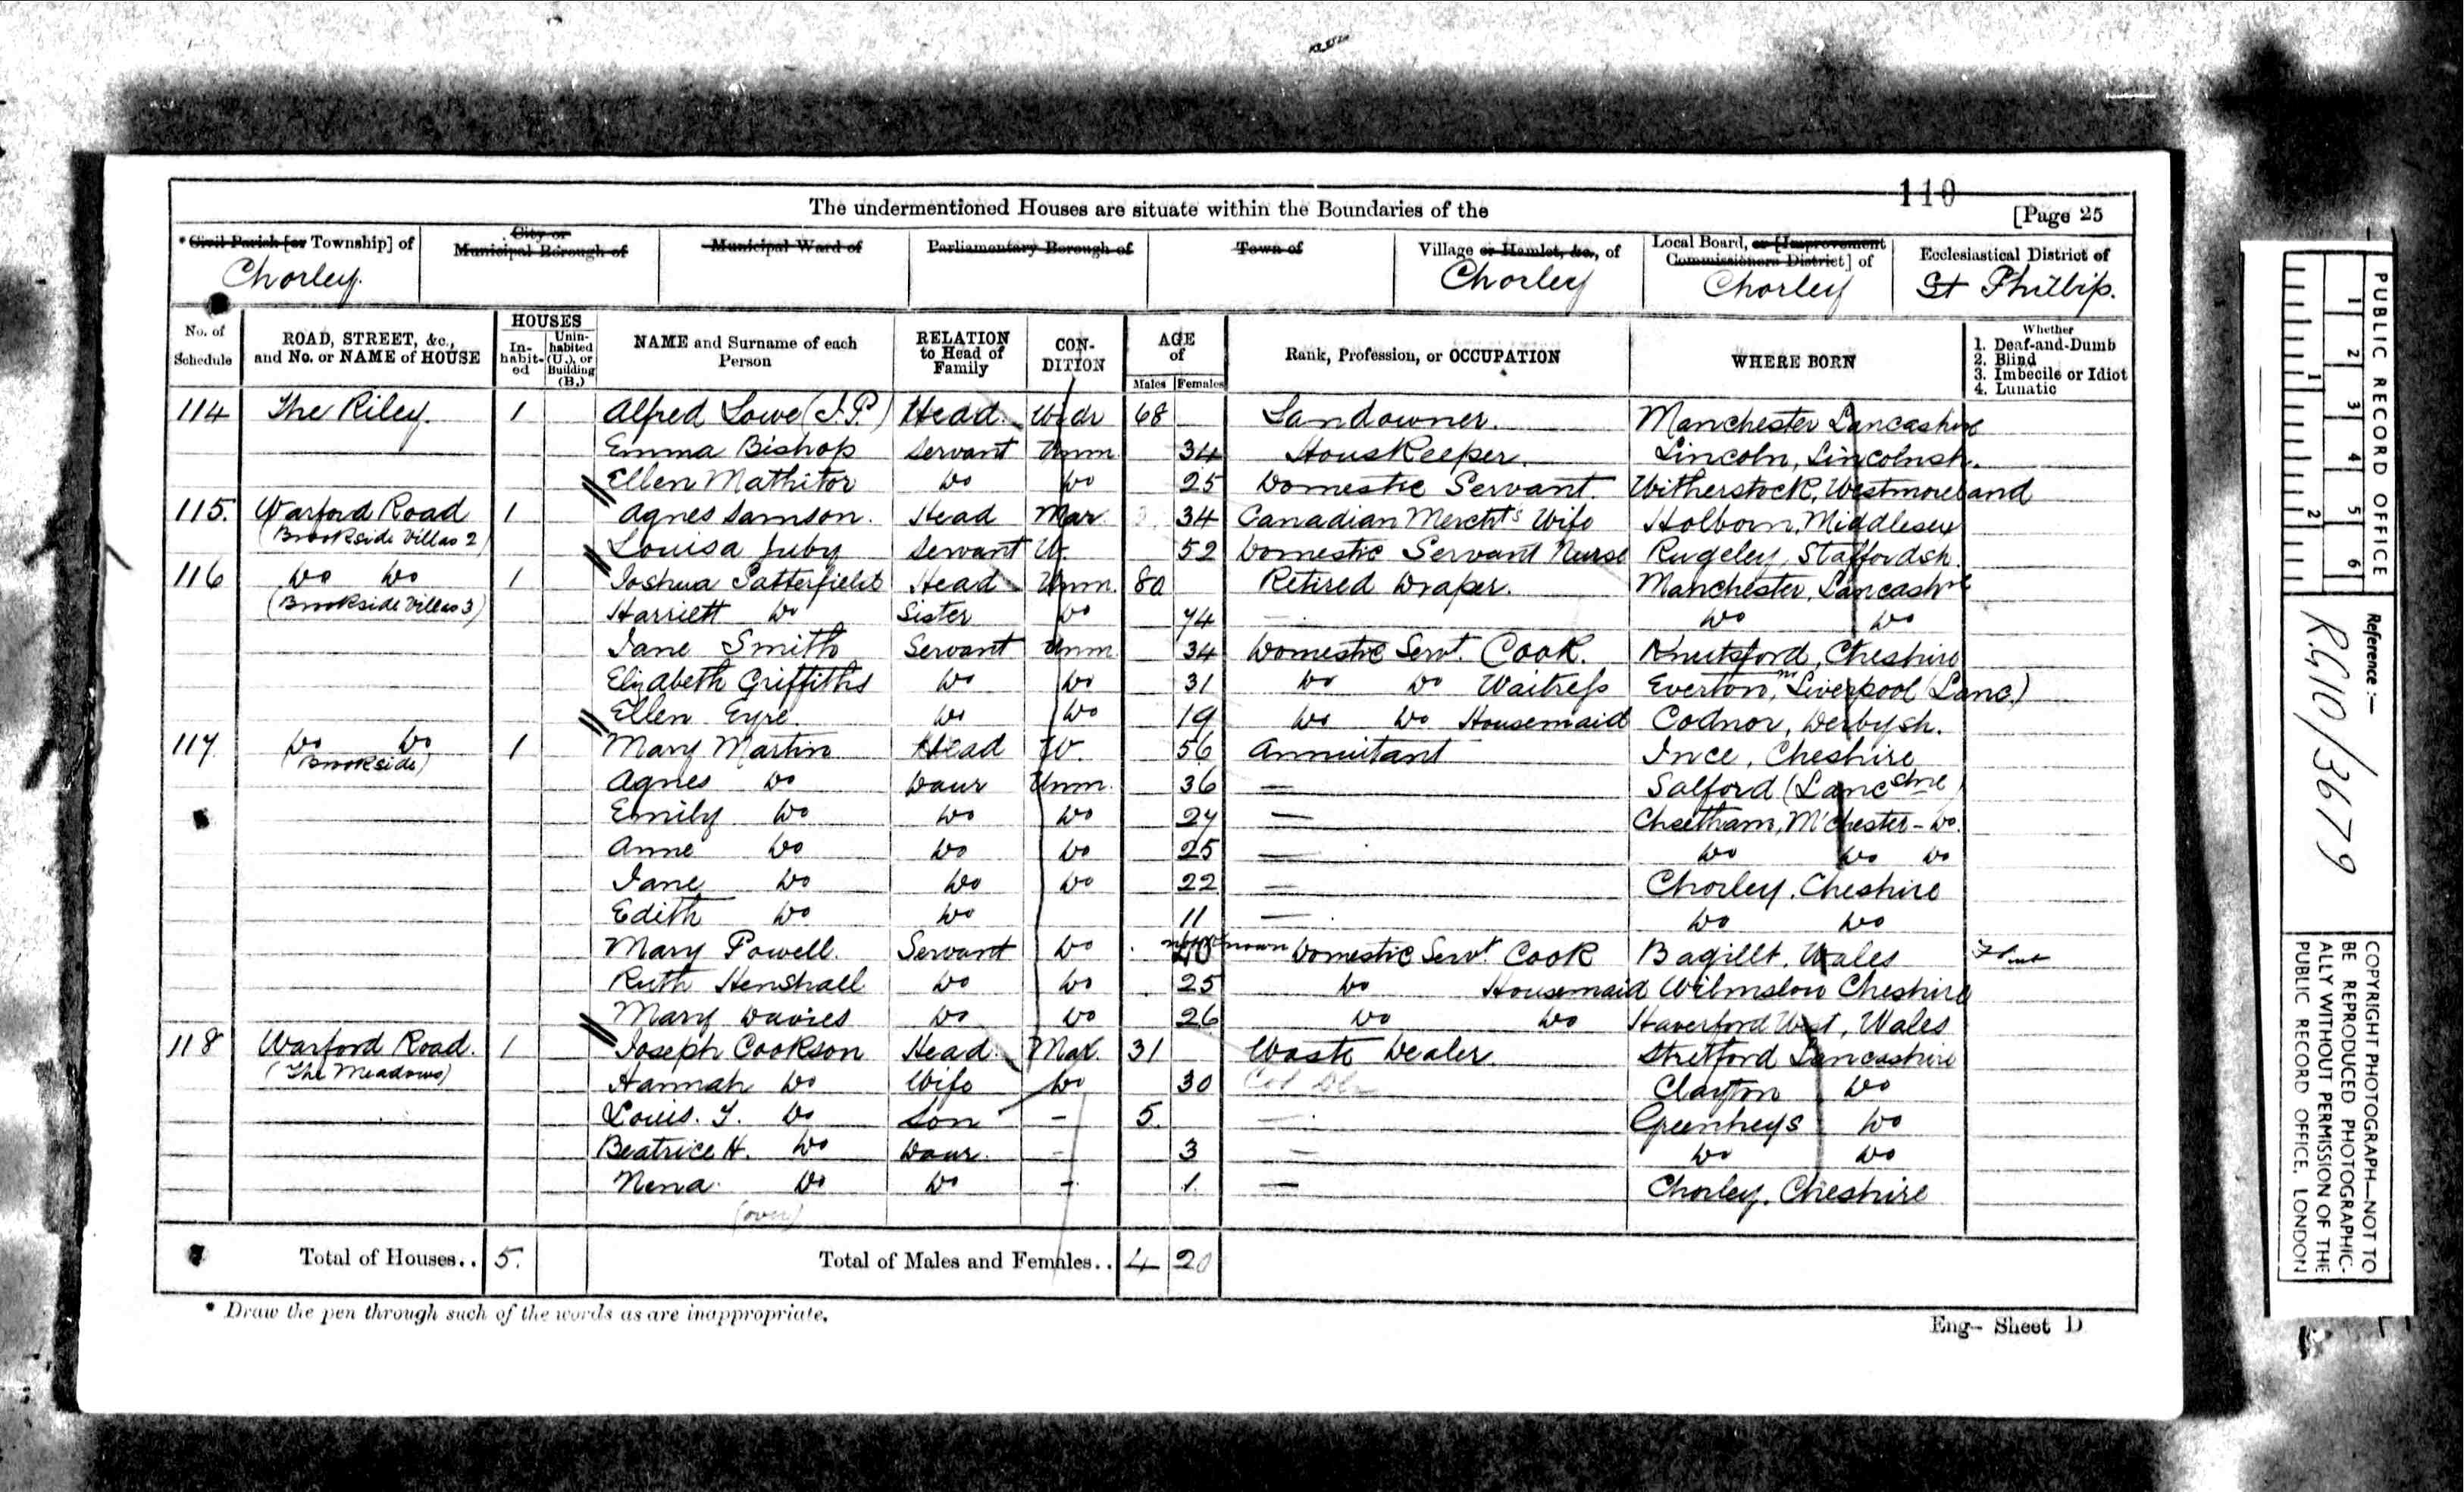 110
The undermentioned Houses are situate within the Boundaries of the [Page 25
* Civil Parish [or Township] of City or Municipal Borough of Municipal Ward of Parliamentary Borough of Town of Village or Hamlet, &c., of Local Board, or [Improvement Commissioners District] of Ecclesiastical District of
Chorley. Chorley Chorley St Phillip.
No. of Schedule ROAD, STREET, &c., and No. or NAME of HOUSE HOUSES In-habit-ed Unin-habited (U.), or Building (B.) NAME and Surname of each Person RELATION to Head of Family CON-DITION AGE of Males Females Rank, Profession, or OCCUPATION WHERE BORN Whether 1. Deaf-and-Dumb 2. Blind 3. Imbecile or Idiot 4. Lunatic
114 The Riley. 1 Alfred Lowe (J.P.) Head Widr 68 Landowner. Manchester Lancashire
Emma Bishop Servant Unm 34 HousKeeper. Lincoln, Lincolnsh.
Ellen Mathitor Do Do 25 Domestic Servant. Witherstock, Westmoreland
115. Warford Road 1 Agnes Samson. Head Mar 34 Canadian Mercht's Wife Holborn, Middlesex
(Brookside Villas 2) Louisa Juby Servant W. 52 Domestic Servant Nurse Rugeley, Staffordsh.
116 Do Do 1 Joshua Satterfield Head Unm. 80 Retired Draper. Manchester, Lancashre
(Brookside Villas 3) Harriett Do Sister Do 74 — Do Do
Jane Smith Servant Unm 34 Domestic Servt. Cook. Knutsford, Cheshire
Elizabeth Griffiths Do Do 31 Do Do Waitress Everton, nr Liverpool (Lanc.)
Ellen Eyre. Do Do 19 Do Do Housemaid Codnor, Derbysh.
117 Do Do 1 Mary Martin Head W. 56 Annuitant Ince, Cheshire
(Brookside) Agnes Do Daur Unm. 36 — Salford (Lancshire)
Emily Do Do Do 27 — Cheetham, M'chester - Do.
Anne Do Do Do 25 — Do Do Do
Jane Do Do Do 22 — Chorley, Cheshire
Edith Do Do 11 — Do Do
Mary Powell. Servant Do not known 40 Domestic Servt Cook Bagillt, Wales Flint
Ruth Henshall Do Do 25 Do Housemaid Wilmslow Cheshire
Mary Davies Do Do 26 Do Do Haverford West, Wales
118 Warford Road. 1 Joseph Cookson Head Mar 31 Waste Dealer. Stretford Lancashire
(The Meadows) Hannah Do Wife Do 30 Clayton Do
Louis. J. Do Son - 5. — Greenheys Do
Beatrice H. Do Daur. - 3 — Do Do
Nena Do Do - 1. — Chorley, Cheshire
(over)
Total of Houses.. 5. Total of Males and Females.. 4 20
* Draw the pen through such of the words as are inappropriate.
Eng- Sheet D
PUBLIC RECORD OFFICE
1 2 3 4 5 6
1 2
Reference :—
R.G 10/3679
COPYRIGHT PHOTOGRAPH—NOT TO BE REPRODUCED PHOTOGRAPHIC-ALLY WITHOUT PERMISSION OF THE PUBLIC RECORD OFFICE, LONDON